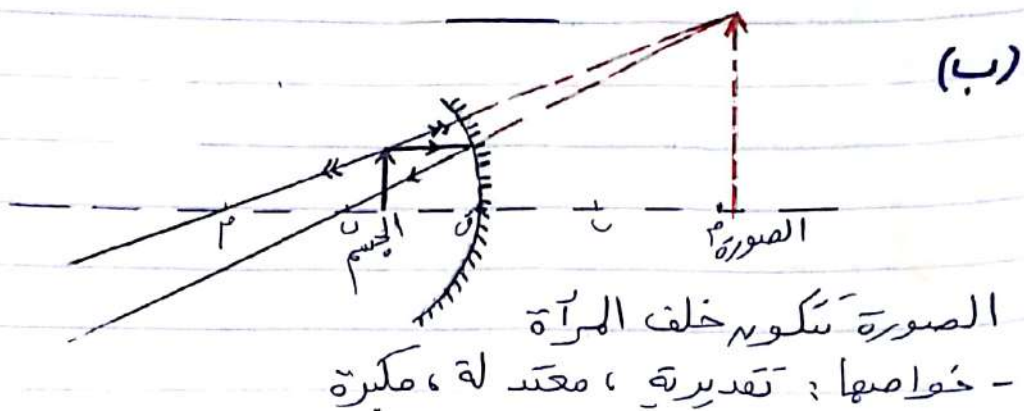 (ب)
م ن الجسم ق ن م الصورة
الصورة تتكون خلف المرآة
- خواصها: تقديرية، معتدلة، مكبرة